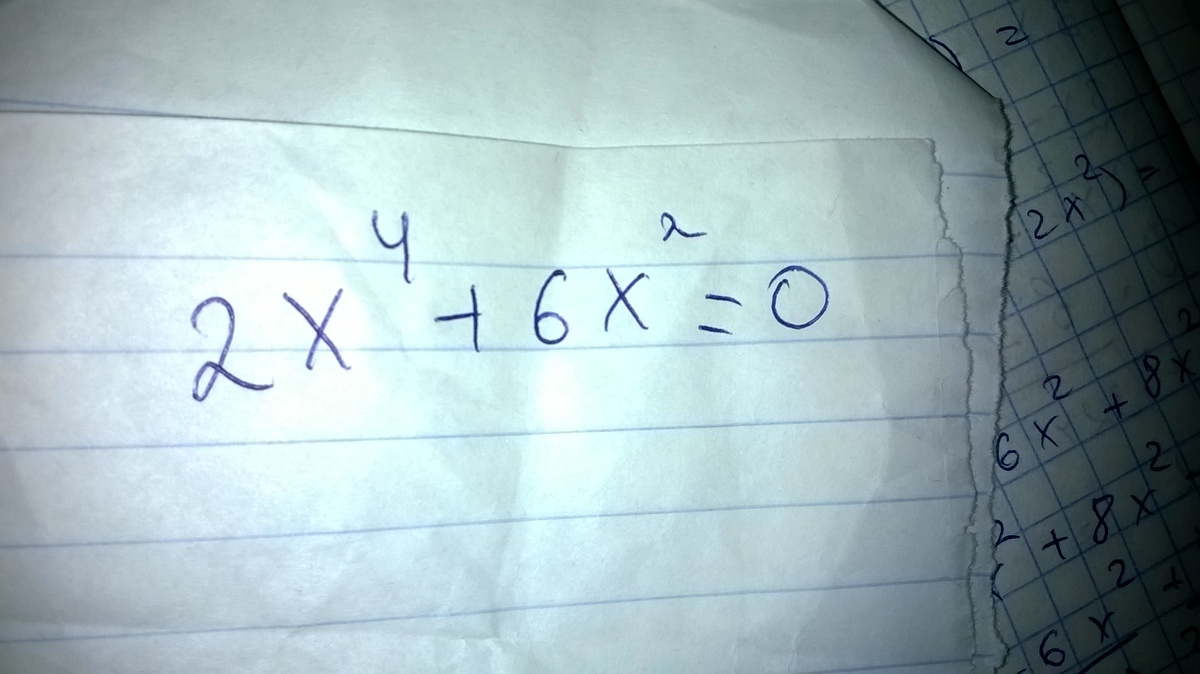 2x⁴ + 6x² = 0
2
2x²) -
6x² + 8x²
2 + 8x²
2 +
6x